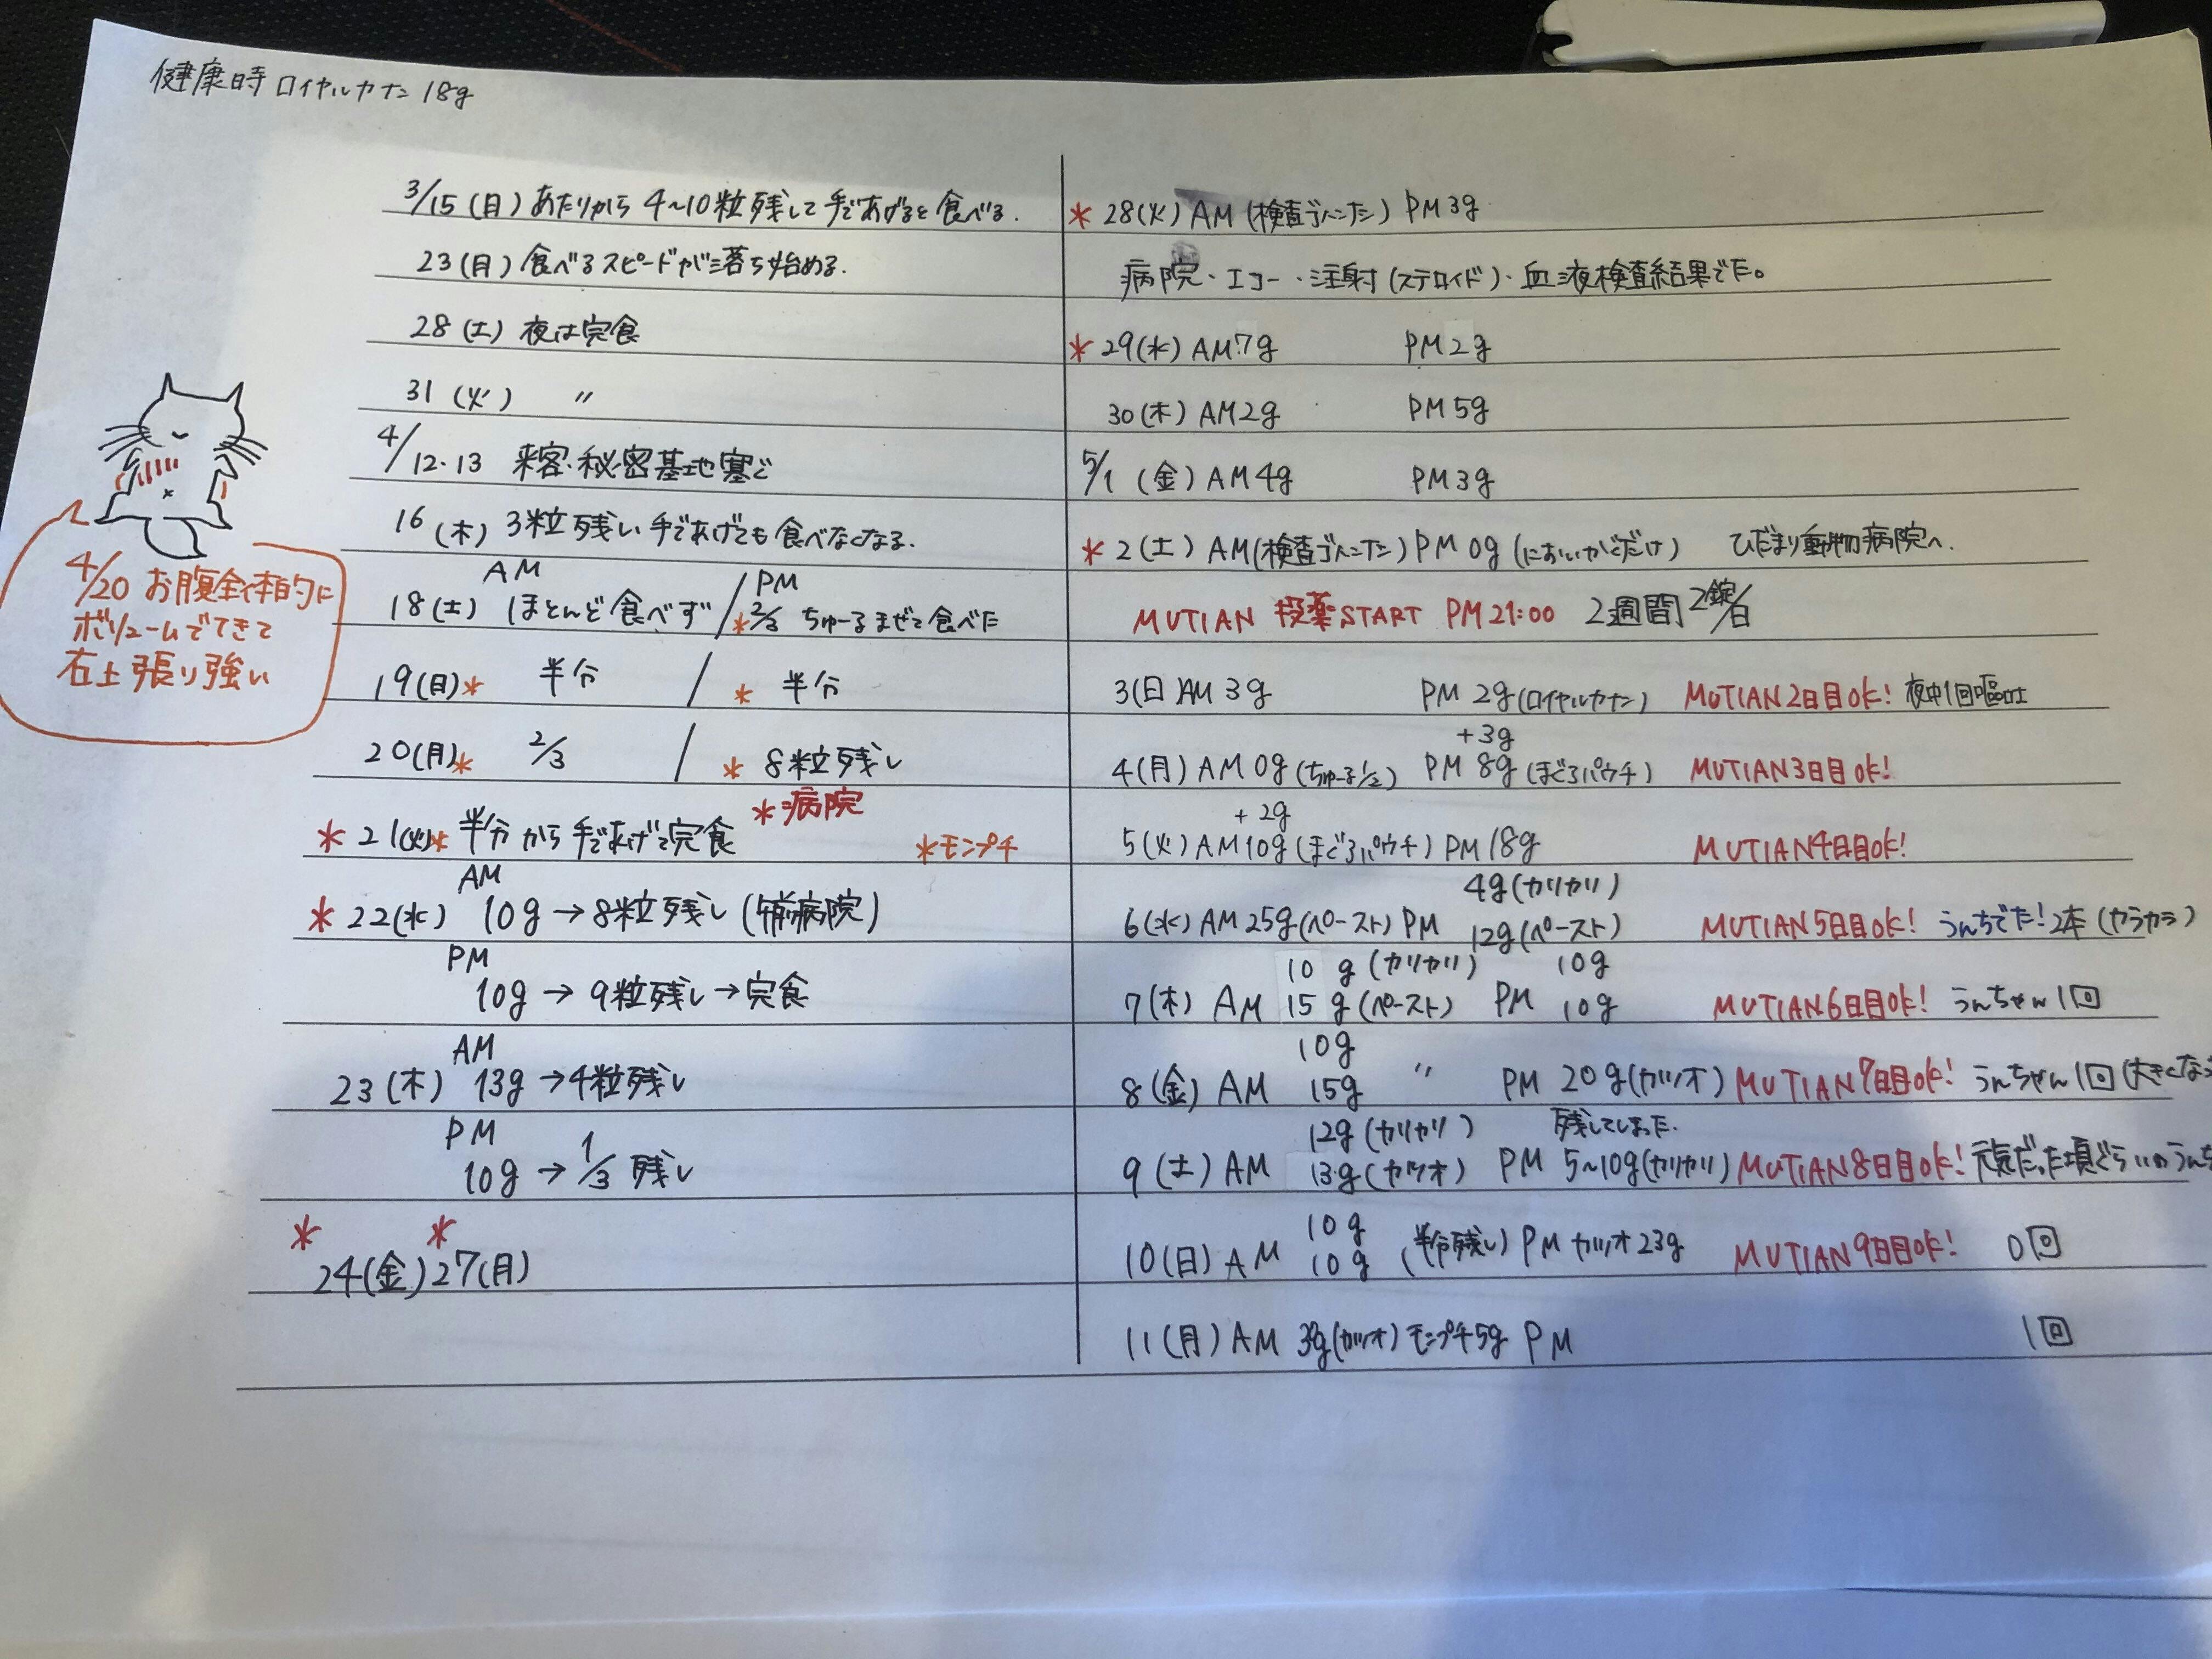 健康時 ロイヤルカナン 18g
3/15(月)あたりから 4~10粒残して手であげると食べる.
23(月)食べるスピードが落ち始める.
28(土)夜は完食
31(火) 〃
4/12・13 来客・秘密基地塞ぐ
16(木)3粒残し 手であげても食べなくなる.
AM PM
18(土) ほとんど食べず / *2/3 ちゅーるまぜて食べた
19(月)* 半分 / * 半分
20(月)* 2/3 / * 8粒残し
*病院
* 21(火)* 半分から手であげて完食 *モンプチ
AM
* 22(水) 10g→8粒残し(午前病院)
PM
10g→9粒残し→完食
AM
23(木) 13g→4粒残し
PM
10g→1/3残し
* *
24(金)27(月)
4/20 お腹全体的に
ボリュームでてきて
右上張り強い
* 28(火)AM(検査ゴハンナシ)PM 3g
病院・エコー・注射(ステロイド)・血液検査結果でた。
* 29(水)AM 7g PM 2g
30(木)AM 2g PM 5g
5/1(金)AM 4g PM 3g
* 2(土)AM(検査ゴハンナシ)PM 0g(においかぐだけ) ひだまり動物病院へ.
MUTIAN 投薬START PM 21:00 2週間 2錠/日
3(日)AM 3g PM 2g(ロイヤルカナン) MUTIAN2日目OK! 夜中1回嘔吐
+3g
4(月)AM 0g(ちゅーる1/2) PM 8g(まぐろパウチ) MUTIAN3日目OK!
+2g
5(火)AM10g(まぐろパウチ)PM 18g MUTIAN4日目OK!
4g(カリカリ)
6(水)AM 25g(ペースト)PM 12g(ペースト) MUTIAN5日目OK! うんちでた!2本(カラカラ)
10g(カリカリ) 10g
7(木)AM 15g(ペースト) PM 10g MUTIAN6日目OK! うんちゃん1回
10g
8(金)AM 15g 〃 PM 20g(カツオ)MUTIAN7日目OK! うんちゃん1回(大きくなっ
12g(カリカリ) 残してしまった.
9(土)AM 13g(カツオ) PM 5~10g(カリカリ)MUTIAN8日目OK!元気だった頃ぐらいのうんち
10g
10(日)AM 10g (半分残し)PM カツオ23g MUTIAN9日目OK! 0回
11(月)AM 3g(カツオ)モンプチ5g PM 1回